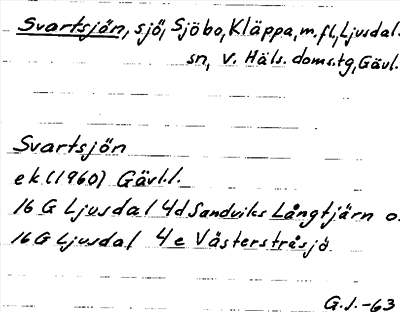 Svartsjön, sjö, Sjöbo, Kläppa, m.fl, Ljusdal.
sn, v. Häls. doms.tg, Gävl.
Svartsjön
ek (1960) Gävl.l.
16 G Ljusdal 4d Sandviks Långtjärn o.
16 G Ljusdal 4 e Västerstråsjö
G.J.-63